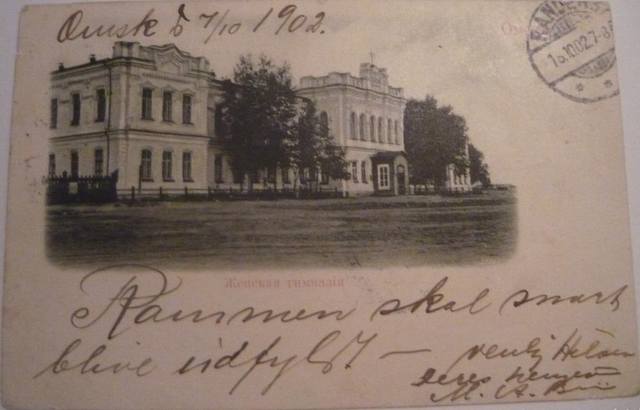 Omsk d 7/10 1902.
RANDERS
15.10.02.7-8
Женская гимназія
Rammen skal snart
blive udfyldt. — venlig Hilsen
Deres
M. A.